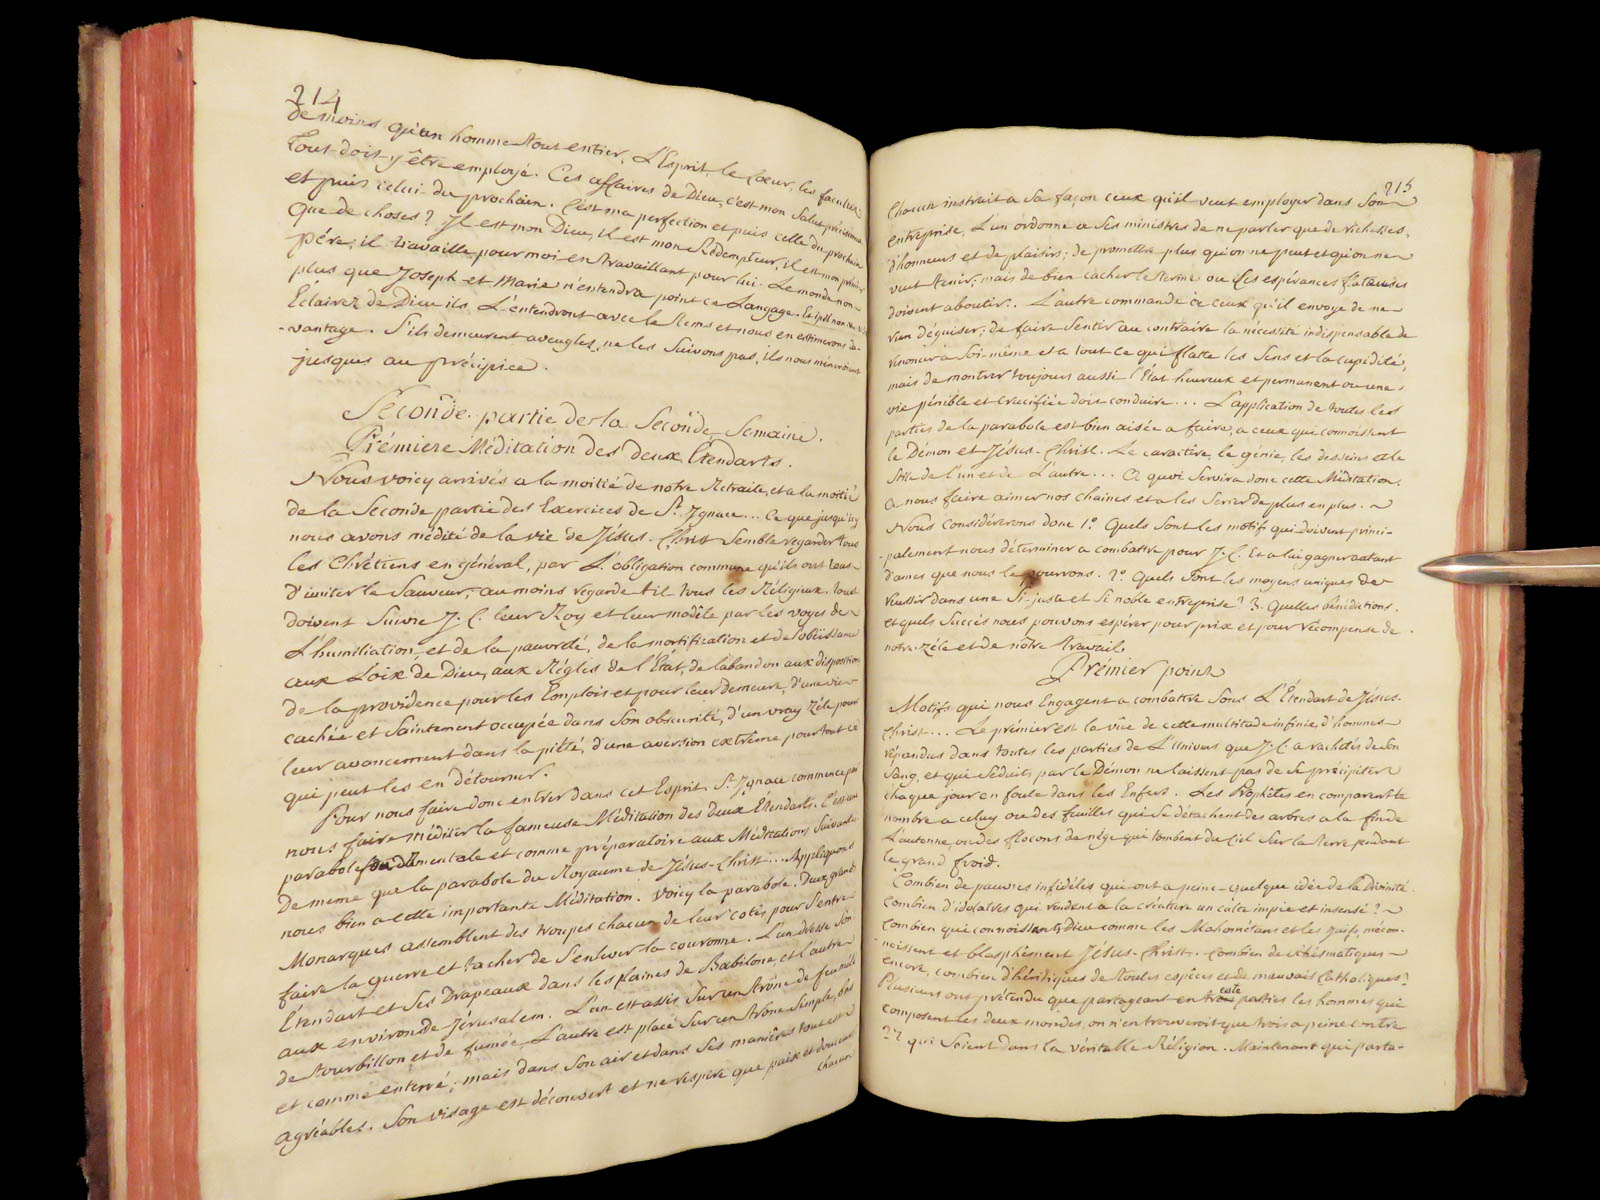 214
de moins qu'un homme tout entier. L'Esprit, le Coeur, les facultés
Tout doit y être employé. Ces affaires de Dieu, c'est mon Salut précisément
et puis celui du prochain. C'est ma perfection et puis celle du prochain
Que de choses? Il est mon Dieu, il est mon Rédempteur, il est mon
pére; il travaille pour moi en travaillant pour lui. Le monde non
plus que Joseph et Marie n'entendra point ce Langage.
Eclairez de Dieu ils L'entendront avec le tems et nous en estimerons da-
-vantage. S'ils demeurent aveugles, ne les Suivons pas, ils nous méneroient
jusques au précipice.
Seconde partie de la Seconde Semaine.
Prémiere Méditation des deux Étendarts.
Nous voicy arrivés a la moitié de notre Retraite, et a la moitié
de la Seconde partie des Exercices de St. Ignace... Ce que jusqu'icy
nous avons médité de la vie de Jésus-Christ Semble regarder tous
les Chrétiens en général, par L'obligation commune qu'ils ont tous
d'imiter le Sauveur; au moins regarde t'il tous les Réligieux. tous
doivent Suivre J. C. leur Roy et leur modéle par les voyes de
L'humiliation, et de la pauvreté, de la mortification et de l'obéissance
aux Loix de Dieu, aux Régles de l'État, de l'abandon aux disposition
de la providence pour les Emplois et pour leur demeure, d'une vie
cachée et Saintement occupée dans Son obscurité, d'un vray Zéle pour
leur avancement dans la piété, d'une aversion extrême pour tout ce
qui peut les en détourner.
Pour nous faire donc entrer dans cet Esprit, St. Ignace commence par
nous faire méditer la fameuse Méditation des deux Étendarts. C'est une
parabole fondamentale et comme préparatoire aux Méditations Suivantes
De meme que la parabole du Royaume de Jésus-Christ... Appliquons
nous bien a cette importante Méditation. Voicy la parabole. Deux grands
Monarques assemblent des troupes chacun de leur cotés pour S'entre
faire la guerre et tacher de S'enlever la couronne. L'un dresse Son
Étendart et Ses Drapeaux dans les plaines de Babilone, et l'autre
aux environ de Jérusalem. L'un est assis Sur un Trône de feu mêlé
de tourbillon et de fumée, L'autre est placé Sur un Trône Simple,
et comme enterré; mais dans Son air et dans Ses maniéres tout est
agréables. Son visage est découvert et ne respire que paix et douceur
chacun
215
Chacun instruit a Sa façon ceux qu'il veut employer dans Son
entreprise. L'un ordonne a Ses ministres de ne parler que de richesses,
d'honneurs et de plaisirs; de promettre plus qu'on ne peut et qu'on ne
veut tenir; mais de bien cacher le terme ou Ces espérances flateuses
doivent aboutir. L'autre commande a ceux qu'il envoye de ne
rien déguiser; de faire Sentir au contraire la nécessité indispensable de
rénoncer a Soi-même et a tout ce qui flatte les Sens et la cupidité,
mais de montrer toujours aussi l'État heureux et permanent ou une
vie pénible et crucifiée doit conduire... L'application de toutes les
parties de la parabole est bien aisée a faire, a ceux qui connoissent
le Démon et Jésus-Christ. Le caractére, le génie, les desseins et le
Stile de l'un et de L'autre... A quoi Servira donc cette Méditation.
A nous faire aimer nos chaines et a les Serrer de plus en plus.
Nous Considérerons donc 1.° Quels Sont les motifs qui doivent princi-
-palement nous déterminer a combattre pour J. C. et a lui gagner autant
d'ames que nous le pourrons. 2.° Quels Sont les moyens uniques de
réussir dans une Si juste et Si noble entreprise? 3. Quelles bénédictions,
et quels Succès nous pouvons espérer pour prix et pour récompense de
notre zéle et de nôtre travail.
Prémier point
Motifs qui nous Engagent a combattre Sous L'Étendart de Jésus-
Christ... Le prémier est la vüe de cette multitude infinie d'hommes
répandus dans toutes les parties de L'univers que J. C. a rachetés de Son
Sang, et qui Séduits par le Démon ne laissent pas de Se précipiter
chaque jour en foule dans les Enfers. Les Prophêtes en comparent le
nombre a celuy ou des feuilles qui Se détachent des arbres a la fin de
L'automne, ou des flocons de nége qui tombent du Ciel Sur la terre pendant
le grand froid.
Combien de pauvres infidéles qui ont a peine quelque idée de la Divinité.
Combien d'idolatres qui rendent a la créature un culte impie et insensé?
Combien qui connoissants Dieu comme les Mahométans et les juifs, mécon-
-noissent et blasphêment Jésus-Christ. Combien de schismatiques
encore, combien d'hérétiques de toutes espéces et de mauvais Catholiques?
Plusieurs ont prétendu que partageant en trente parties les hommes qui
composent les deux mondes, on n'en trouveroit que trois a peine contre
27 qui Soient dans la véritable Réligion. Maintenant qui parta-